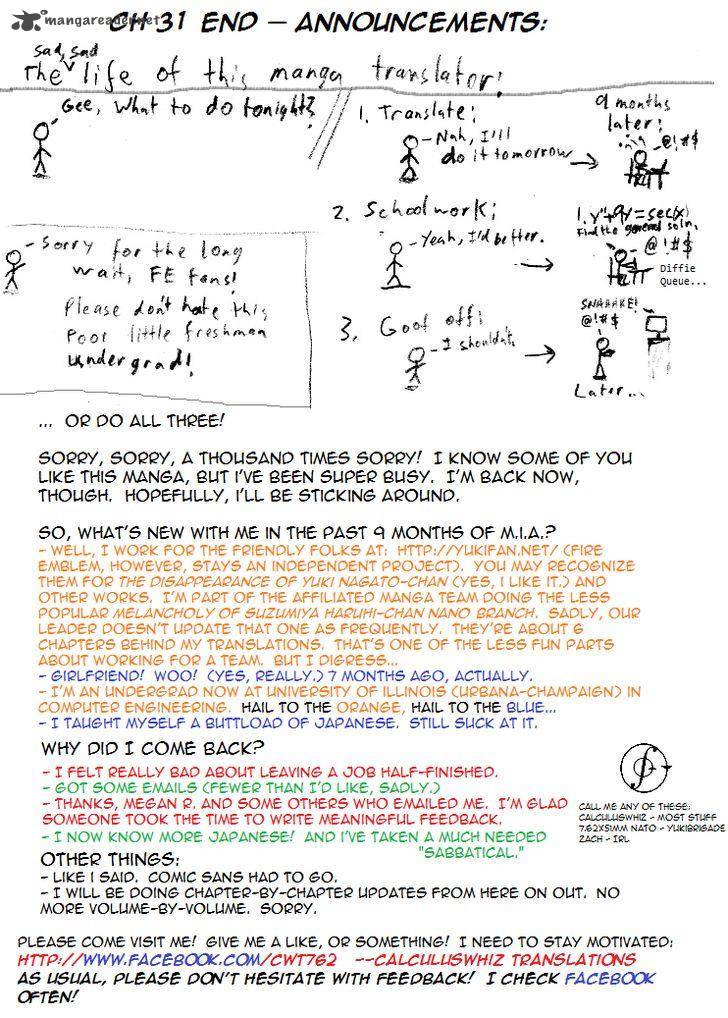 mangareader.net
CH 31 END – ANNOUNCEMENTS:
sad, sad
The life of this manga translator:
Gee, What to do tonight?
1. Translate:
Nah, I'll
do it tomorrow
9 months
later:
@!#$
2. Schoolwork:
Yeah, I'd better.
1. y"+9y=sec(x)
Find the general soln.
@!#$
Diffie
Queue...
3. Goof off:
I shouldn't
SNAAAKE!
@!#$
Later...
Sorry for the long
wait, FE fans!
Please don't hate this
poor little freshman
undergrad!
... OR DO ALL THREE!
SORRY, SORRY, A THOUSAND TIMES SORRY! I KNOW SOME OF YOU
LIKE THIS MANGA, BUT I'VE BEEN SUPER BUSY. I'M BACK NOW,
THOUGH. HOPEFULLY, I'LL BE STICKING AROUND.
SO, WHAT'S NEW WITH ME IN THE PAST 9 MONTHS OF M.I.A.?
- WELL, I WORK FOR THE FRIENDLY FOLKS AT: HTTP://YUKIFAN.NET/ (FIRE
EMBLEM, HOWEVER, STAYS AN INDEPENDENT PROJECT). YOU MAY RECOGNIZE
THEM FOR THE DISAPPEARANCE OF YUKI NAGATO-CHAN (YES, I LIKE IT.) AND
OTHER WORKS. I'M PART OF THE AFFILIATED MANGA TEAM DOING THE LESS
POPULAR MELANCHOLY OF SUZUMIYA HARUHI-CHAN NANO BRANCH. SADLY, OUR
LEADER DOESN'T UPDATE THAT ONE AS FREQUENTLY. THEY'RE ABOUT 6
CHAPTERS BEHIND MY TRANSLATIONS. THAT'S ONE OF THE LESS FUN PARTS
ABOUT WORKING FOR A TEAM. BUT I DIGRESS...
- GIRLFRIEND! WOO! (YES, REALLY.) 7 MONTHS AGO, ACTUALLY.
- I'M AN UNDERGRAD NOW AT UNIVERSITY OF ILLINOIS (URBANA-CHAMPAIGN) IN
COMPUTER ENGINEERING. HAIL TO THE ORANGE, HAIL TO THE BLUE...
- I TAUGHT MYSELF A BUTTLOAD OF JAPANESE. STILL SUCK AT IT.
WHY DID I COME BACK?
- I FELT REALLY BAD ABOUT LEAVING A JOB HALF-FINISHED.
- GOT SOME EMAILS (FEWER THAN I'D LIKE, SADLY.)
- THANKS, MEGAN R. AND SOME OTHERS WHO EMAILED ME. I'M GLAD
SOMEONE TOOK THE TIME TO WRITE MEANINGFUL FEEDBACK.
- I NOW KNOW MORE JAPANESE! AND I'VE TAKEN A MUCH NEEDED
"SABBATICAL."
CALL ME ANY OF THESE:
CALCULUSWHIZ - MOST STUFF
7.62X51MM NATO - YUKIBRIGADE
ZACH - IRL
OTHER THINGS:
- LIKE I SAID. COMIC SANS HAD TO GO.
- I WILL BE DOING CHAPTER-BY-CHAPTER UPDATES FROM HERE ON OUT. NO
MORE VOLUME-BY-VOLUME. SORRY.
PLEASE COME VISIT ME! GIVE ME A LIKE, OR SOMETHING! I NEED TO STAY MOTIVATED:
HTTP://WWW.FACEBOOK.COM/CWT762 --CALCULUSWHIZ TRANSLATIONS
AS USUAL, PLEASE DON'T HESITATE WITH FEEDBACK! I CHECK FACEBOOK
OFTEN!